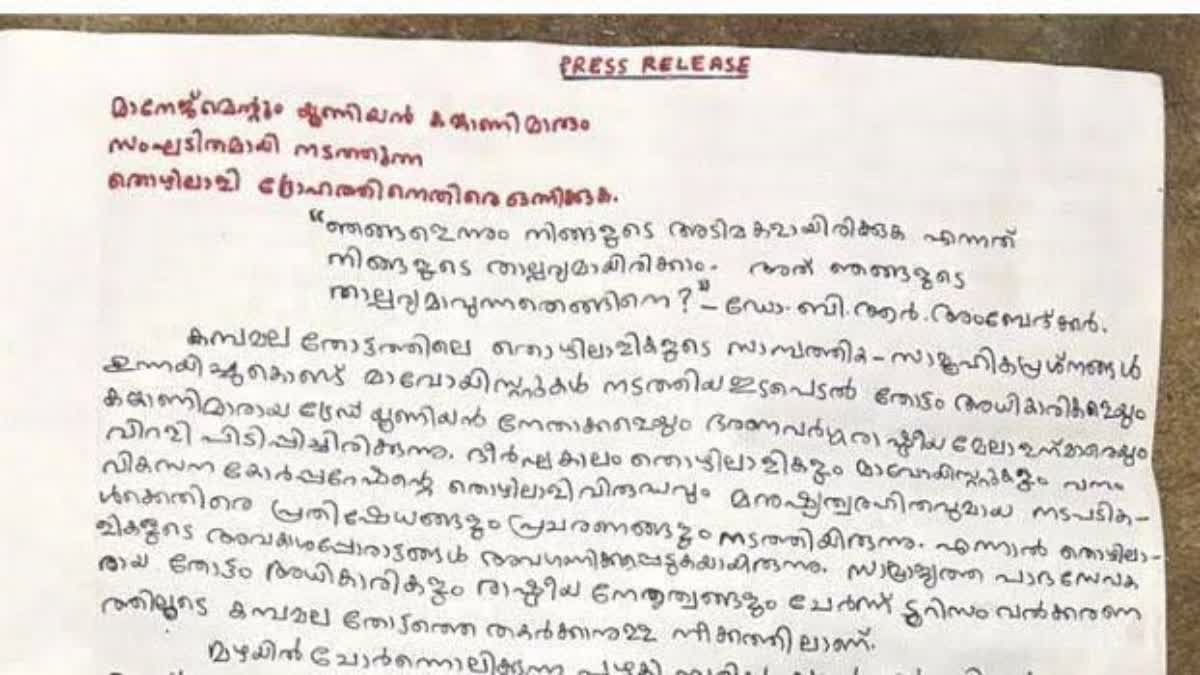 PRESS RELEASE
മാനേജ്മെന്റും യൂണിയൻ കങ്കാണിമാരും
സംഘടിതമായി നടത്തുന്ന
തൊഴിലാളി ദ്രോഹത്തിനെതിരെ ഒന്നിക്കുക.
"ഞങ്ങളെന്നും നിങ്ങളുടെ അടിമകളായിരിക്കുക എന്നത്
നിങ്ങളുടെ താല്പര്യമായിരിക്കാം. അത് ഞങ്ങളുടെ
താല്പര്യമാവുന്നതെങ്ങിനെ?" – ഡോ. ബി. ആർ. അംബേദ്ക്കർ.
കമ്പമല തോട്ടത്തിലെ തൊഴിലാളികളുടെ സാമ്പത്തിക – സാമൂഹികപ്രശ്നങ്ങൾ
ഉന്നയിച്ചുകൊണ്ട് മാവോയിസ്റ്റുകൾ നടത്തിയ ഇടപെടൽ തോട്ടം അധികാരികളെയും
കങ്കാണിമാരായ ട്രേഡ് യൂണിയൻ നേതാക്കളെയും ഭരണവർഗ്ഗരാഷ്ട്രീയ മേലാളന്മാരെയും
വിറളി പിടിപ്പിച്ചിരിക്കുന്നു. ദീർഘകാലം തൊഴിലാളികളും മാവോയിസ്റ്റുകളും വനം
വികസന കോർപ്പറേഷന്റെ തൊഴിലാളിവിരുദ്ധവും മനുഷ്യത്വരഹിതവുമായ നടപടിക–
ൾക്കെതിരെ പ്രതിഷേധങ്ങളും പ്രചരണങ്ങളും നടത്തിയിരുന്നു. എന്നാൽ തൊഴിലാ–
ളികളുടെ അവകാശപ്പോരാട്ടങ്ങൾ അവഗണിക്കപ്പെടുകയായിരുന്നു. സാമ്രാജ്യത്ത പാദസേവക
രായ തോട്ടം അധികാരികളും രാഷ്ട്രീയ നേതൃത്വങ്ങളും ചേർന്ന് ടൂറിസം വൽക്കരണ
ത്തിലൂടെ കമ്പമല തോട്ടത്തെ തകർക്കാനുള്ള നീക്കത്തിലാണ്.
മഴയിൽ ചോർന്നൊലിക്കുന്ന